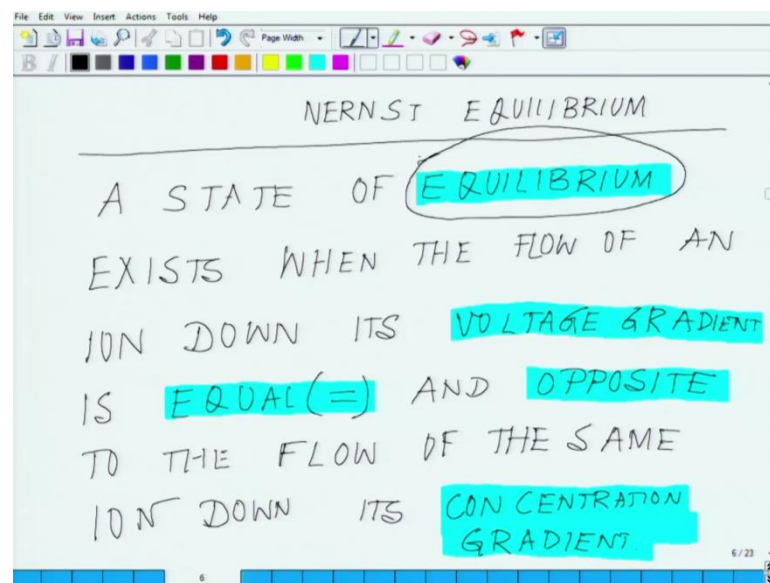 File Edit View Insert Actions Tools Help
Page Width
B I
NERNST EQUILIBRIUM
A STATE OF EQUILIBRIUM
EXISTS WHEN THE FLOW OF AN
ION DOWN ITS VOLTAGE GRADIENT
IS EQUAL (=) AND OPPOSITE
TO THE FLOW OF THE SAME
ION DOWN ITS CONCENTRATION
GRADIENT.
6/23
6